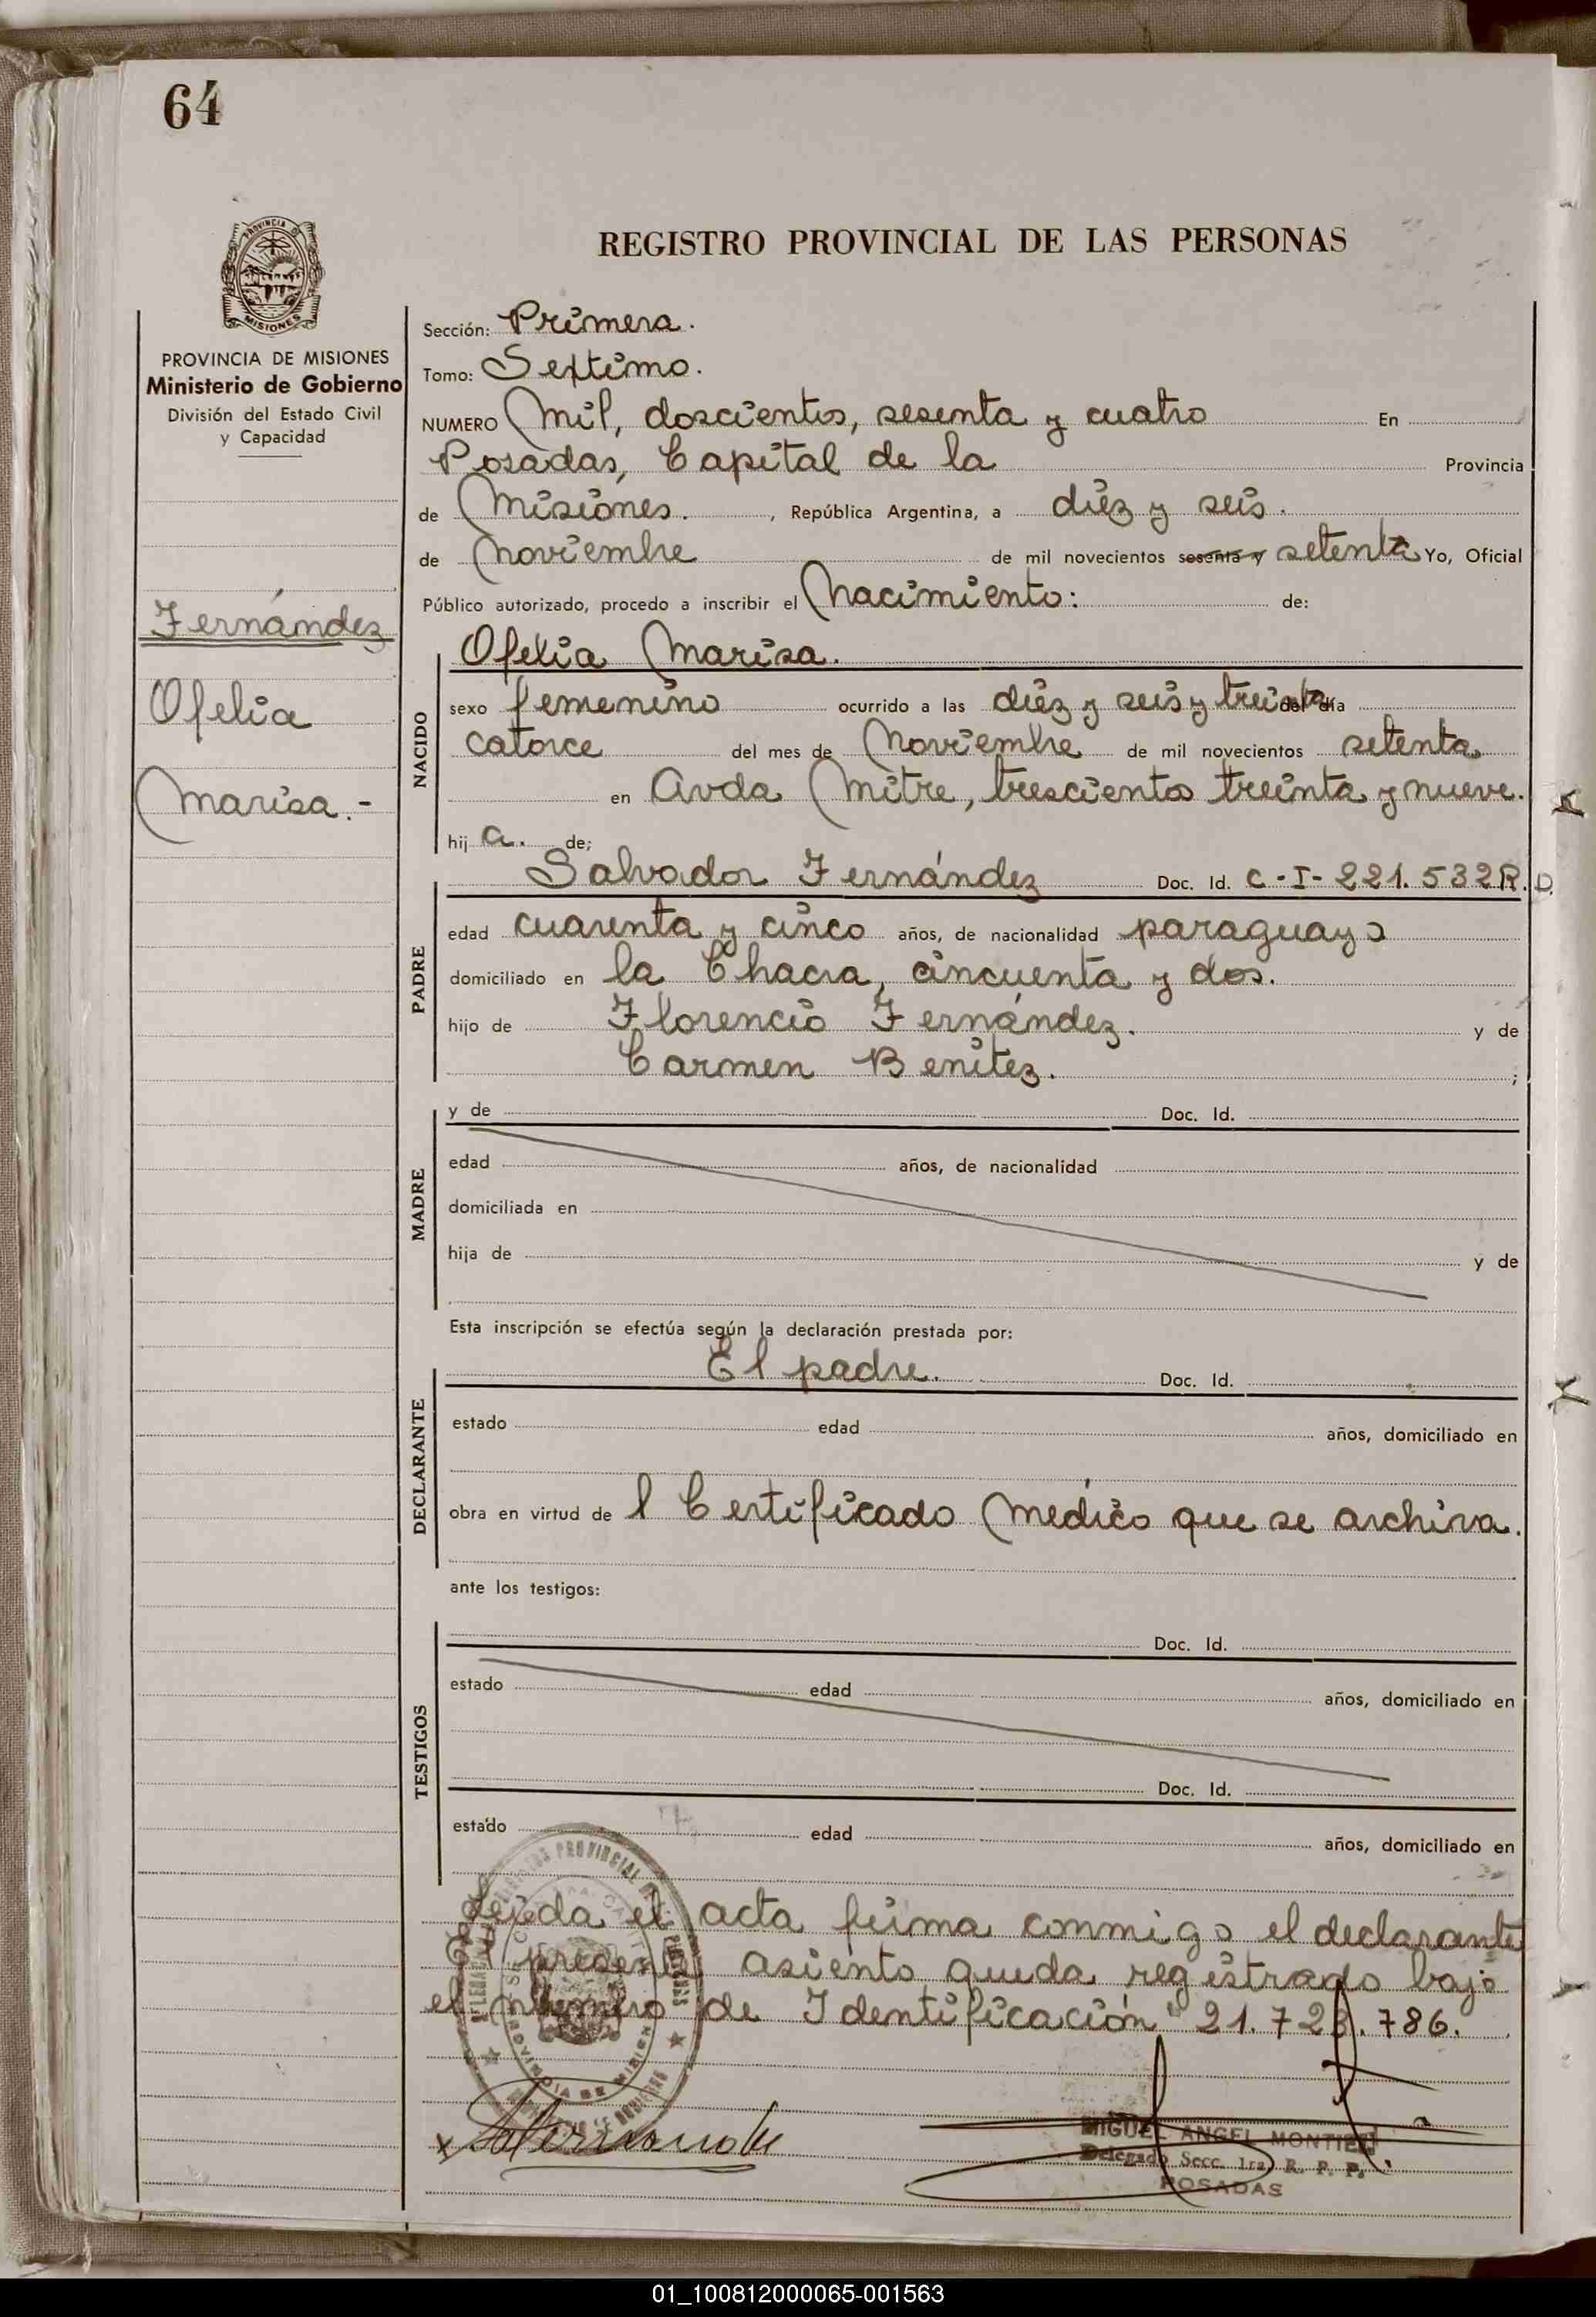 64
REGISTRO PROVINCIAL DE LAS PERSONAS
PROVINCIA DE MISIONES
Ministerio de Gobierno
División del Estado Civil
y Capacidad
Fernández
Ofelia
Marisa.-
Sección: Primera.
Tomo: Septimo.
NUMERO Mil, doscientos, sesenta y cuatro En
Posadas, Capital de la Provincia
de Misiones. , República Argentina, a diéz y seis.
de Noviembre de mil novecientos sesenta y setenta Yo, Oficial
Público autorizado, procedo a inscribir el Nacimiento: de:
Ofelia Marisa.
NACIDO
sexo femenino ocurrido a las diéz y seis y treinta del día
catorce del mes de Noviembre de mil novecientos setenta
en Avda Mitre, trescientos treinta y nueve.
hij a. de;
Salvador Fernández Doc. Id. C-I-221.532R.D.
PADRE
edad cuarenta y cinco años, de nacionalidad paraguayo
domiciliado en la Chacra, cincuenta y dos.
hijo de Florencio Fernández. y de
Carmen Benitez. ;
MADRE
y de Doc. Id.
edad años, de nacionalidad
domiciliada en
hija de y de
Esta inscripción se efectúa según la declaración prestada por:
El padre. Doc. Id.
DECLARANTE
estado edad años, domiciliado en
obra en virtud de l Certificado Médico que se archiva.
ante los testigos:
TESTIGOS
Doc. Id.
estado edad años, domiciliado en
Doc. Id.
estado edad años, domiciliado en
Leída el acta firma conmigo el declarante
El presente asiento queda registrado bajo
el número de Identificación 21.723.786.
MIGUEL ANGEL MONTIEL
Delegado Secc. 1ra. R. P. P.
POSADAS
01_100812000065-001563